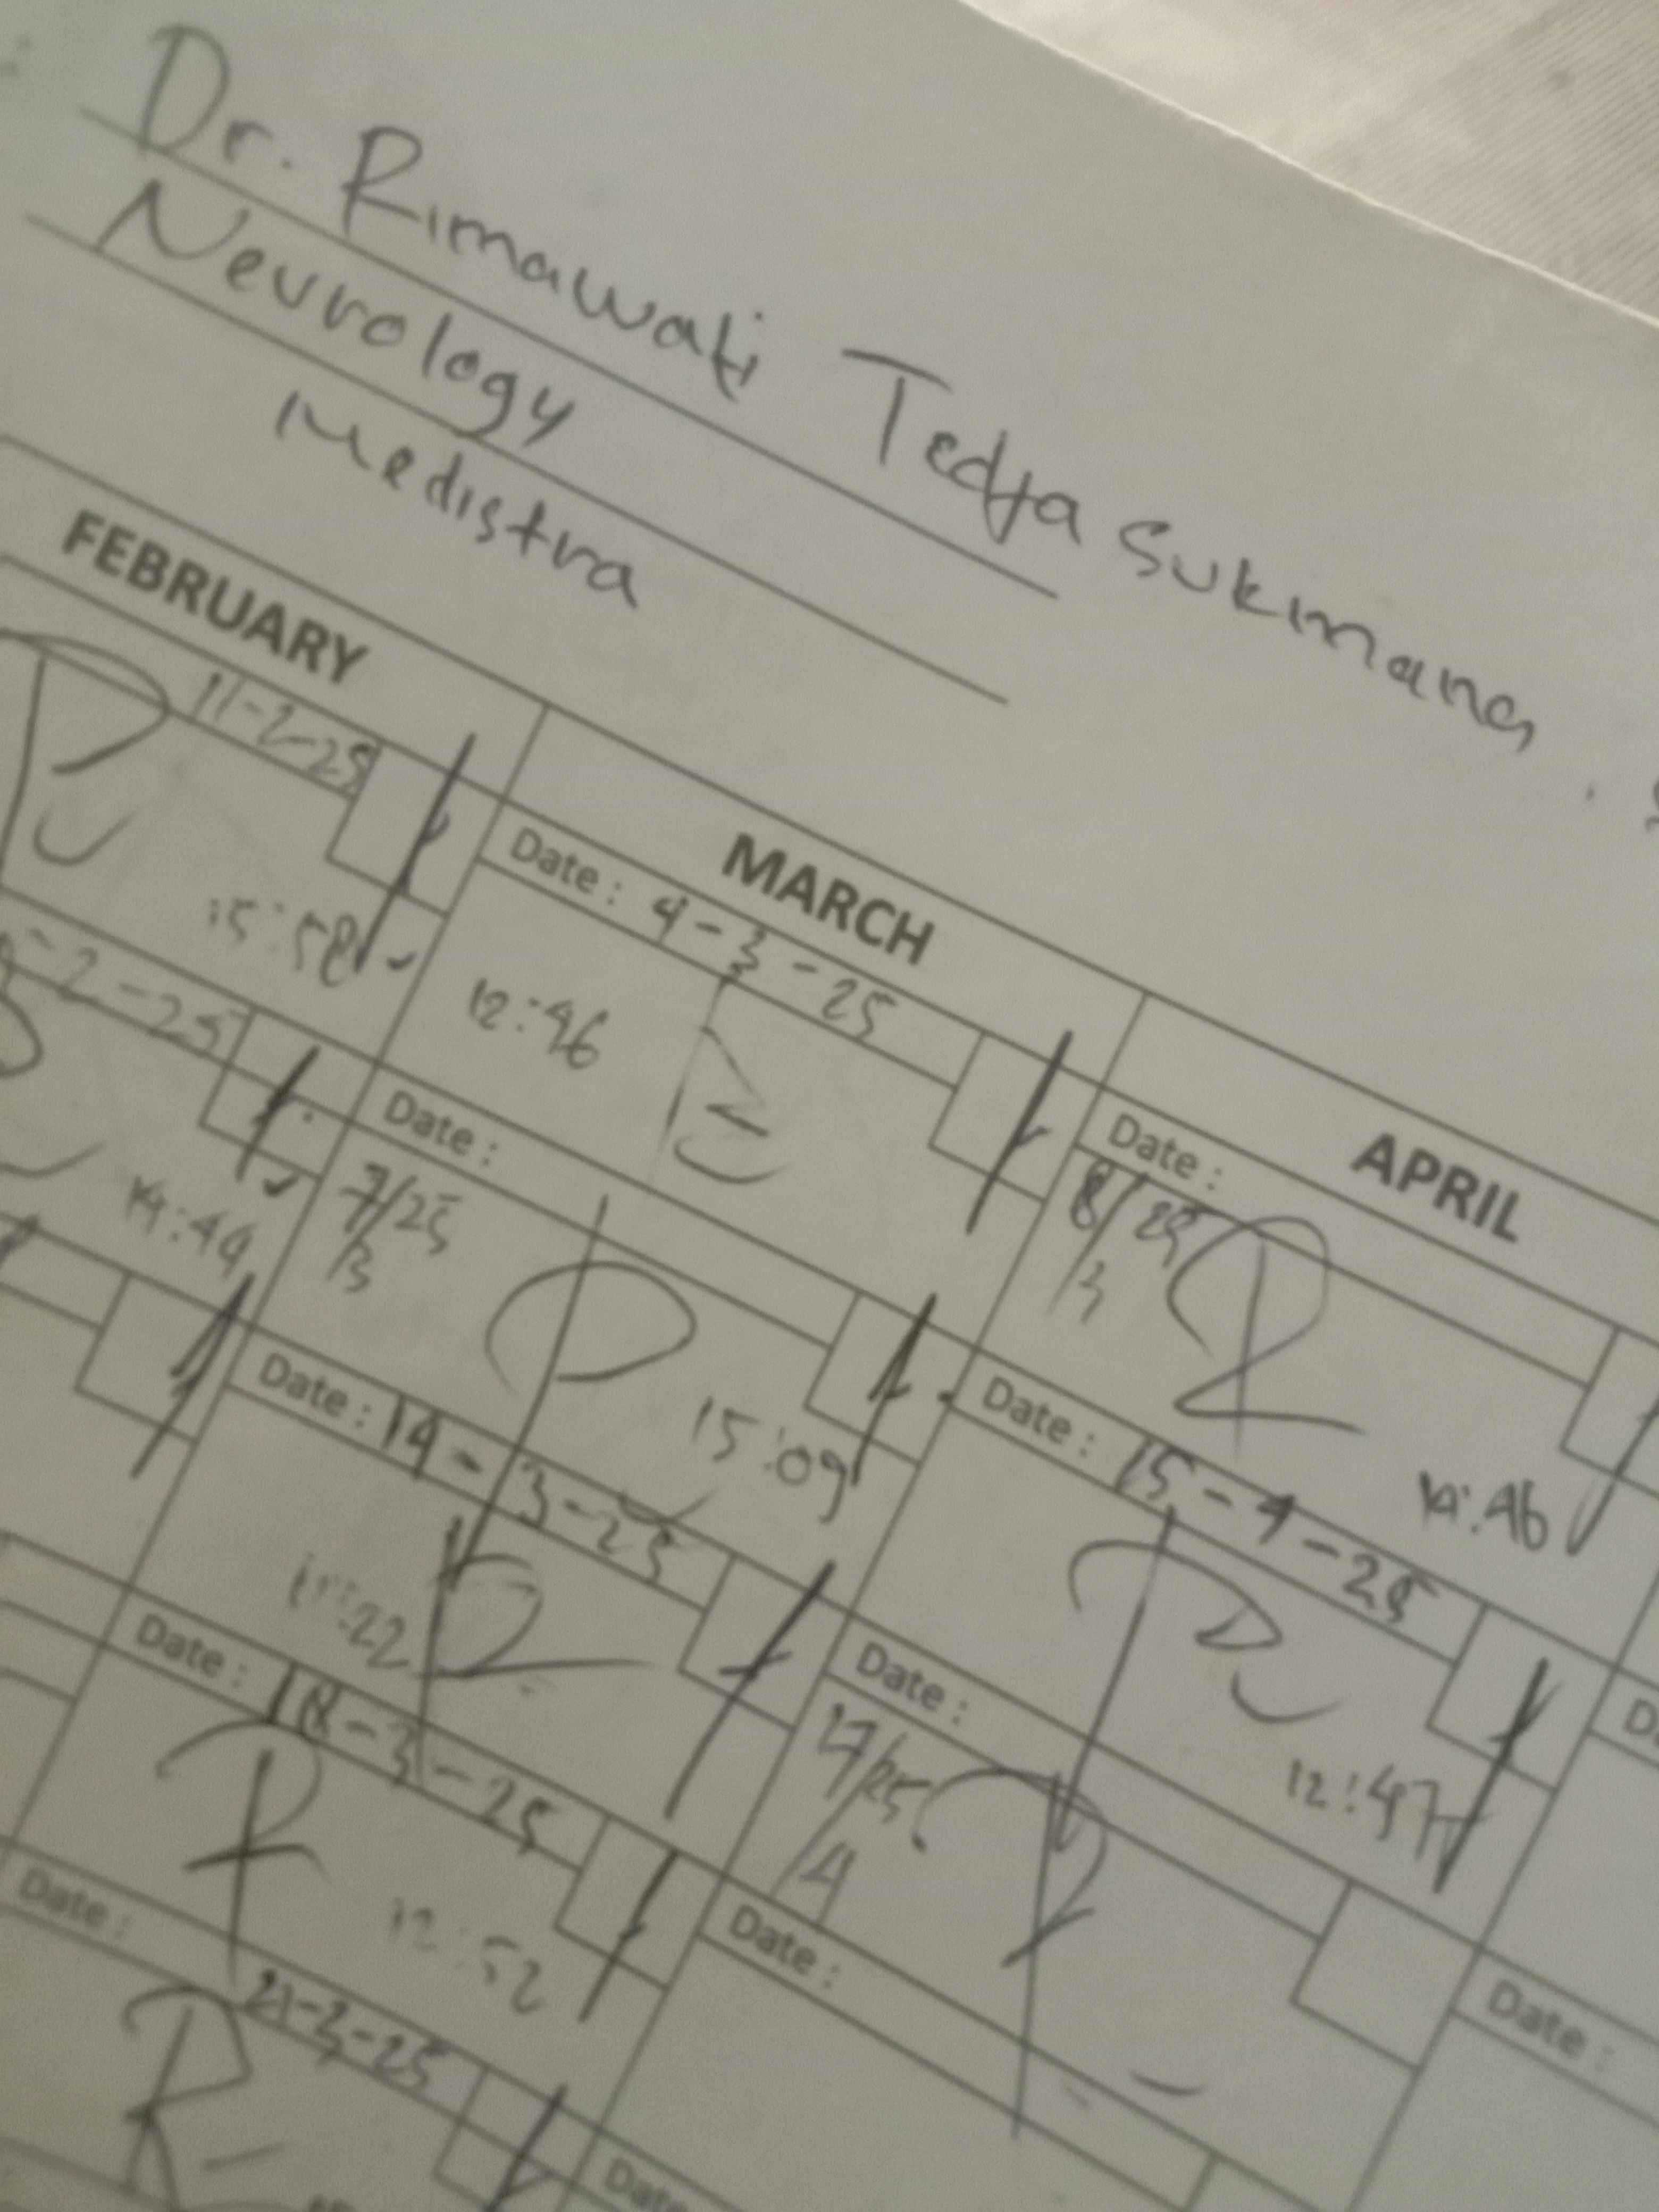 Dr. Rimawati Tedja Sukmana
Neurology
Medistra
FEBRUARY
MARCH
APRIL
11-2-25
15:58
-2-25
14:44
Date : 4-3-25
12:46
Date :
7/25
/3
15:09
Date : 14-3-25
:22
Date : 18-3-25
12:52
Date :
21-3-25
Date :
8/25
/3
14:46
Date : 15-4-25
12:47
Date :
/25
/4
Date :
Date
Date :